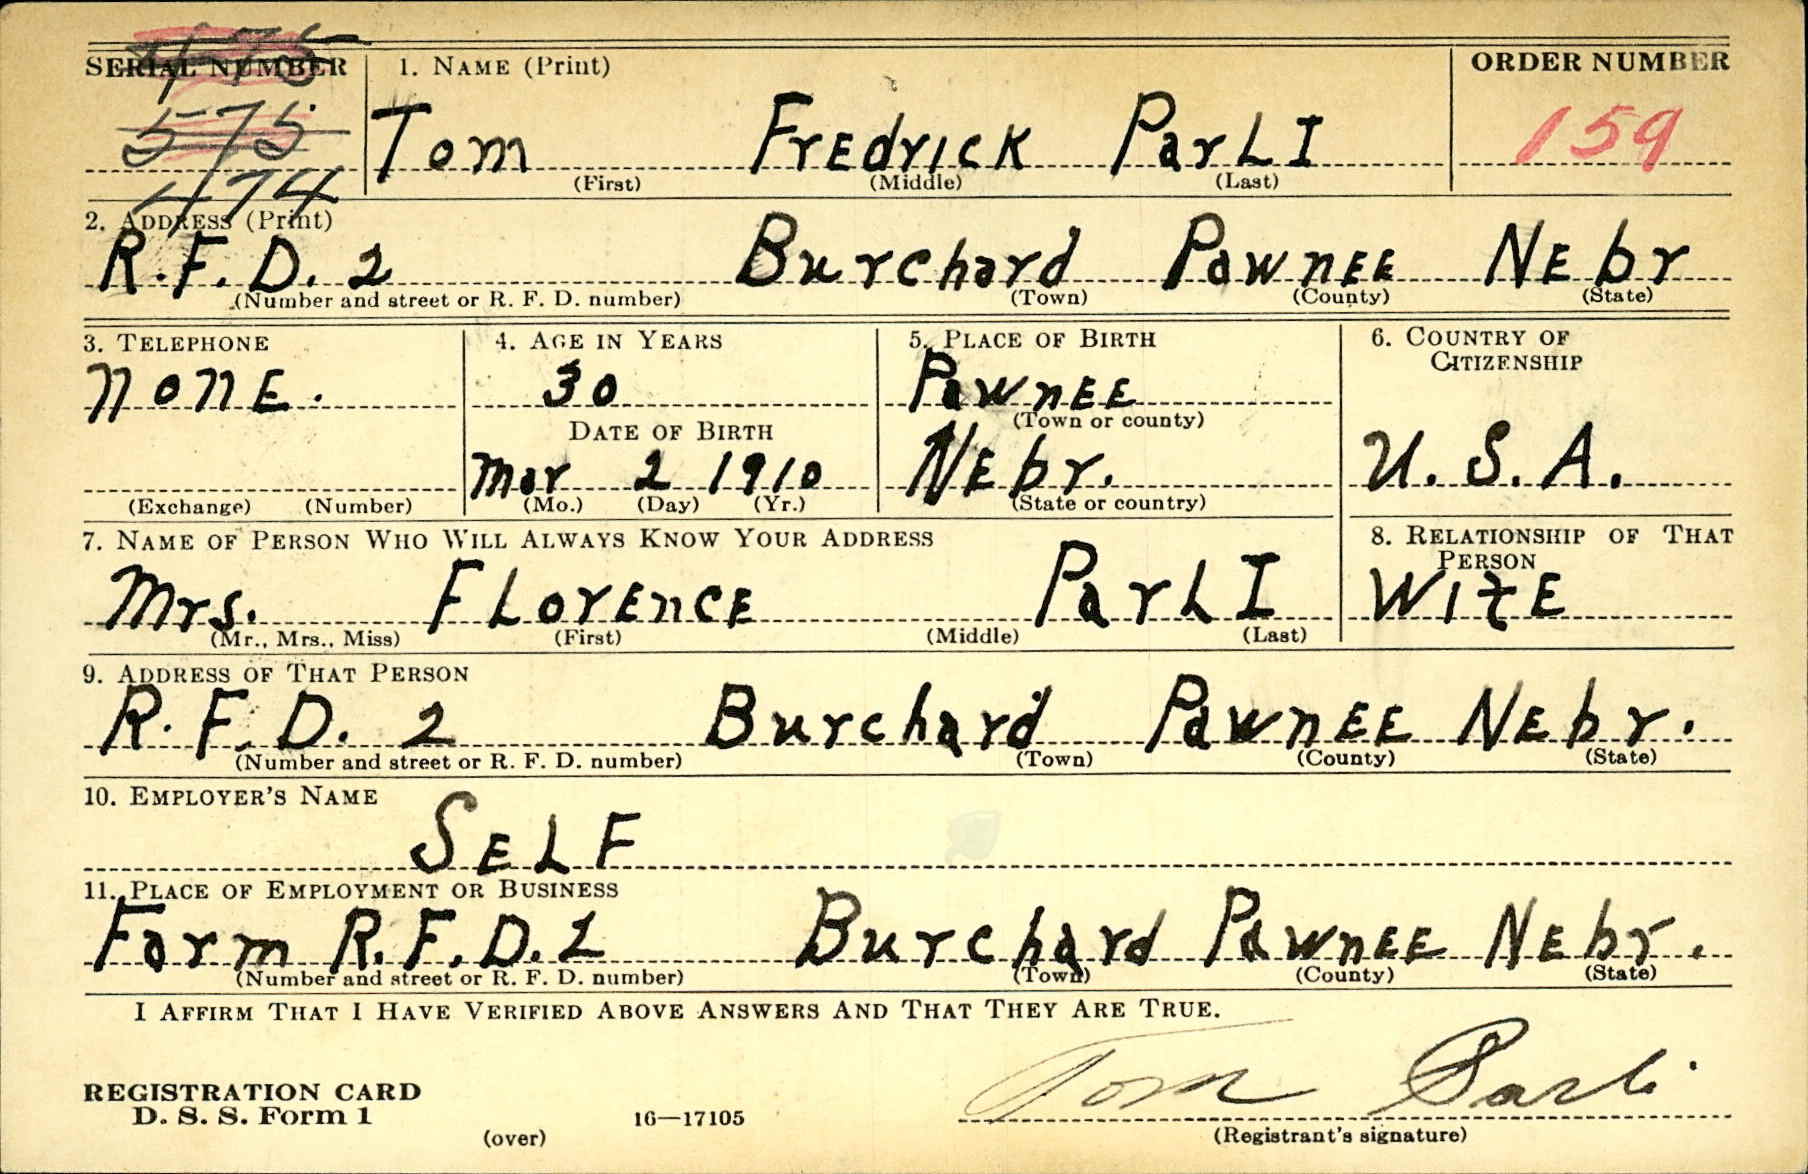 475
SERIAL NUMBER 1. NAME (Print) ORDER NUMBER
575
Tom FrEdrick ParLI 159
(First) (Middle) (Last)
474
2. ADDRESS (Print)
R.F.D. 2 Burchard PawnEE NEbr
(Number and street or R. F. D. number) (Town) (County) (State)
3. TELEPHONE 4. AGE IN YEARS 5. PLACE OF BIRTH 6. COUNTRY OF
CITIZENSHIP
nonE. 30 PawnEE
(Town or county)
DATE OF BIRTH
Mar 2 1910 NEbr. U.S.A.
(Exchange) (Number) (Mo.) (Day) (Yr.) (State or country)
7. NAME OF PERSON WHO WILL ALWAYS KNOW YOUR ADDRESS 8. RELATIONSHIP OF THAT
PERSON
Mrs. FLorEncE ParLI WifE
(Mr., Mrs., Miss) (First) (Middle) (Last)
9. ADDRESS OF THAT PERSON
R.F.D. 2 Burchard PawnEE NEbr.
(Number and street or R. F. D. number) (Town) (County) (State)
10. EMPLOYER'S NAME
SELF
11. PLACE OF EMPLOYMENT OR BUSINESS
Farm R.F.D. 2 Burchard PawnEE NEbr.
(Number and street or R. F. D. number) (Town) (County) (State)
I AFFIRM THAT I HAVE VERIFIED ABOVE ANSWERS AND THAT THEY ARE TRUE.
Tom Parli
REGISTRATION CARD
D. S. S. Form 1 16—17105
(over) (Registrant's signature)